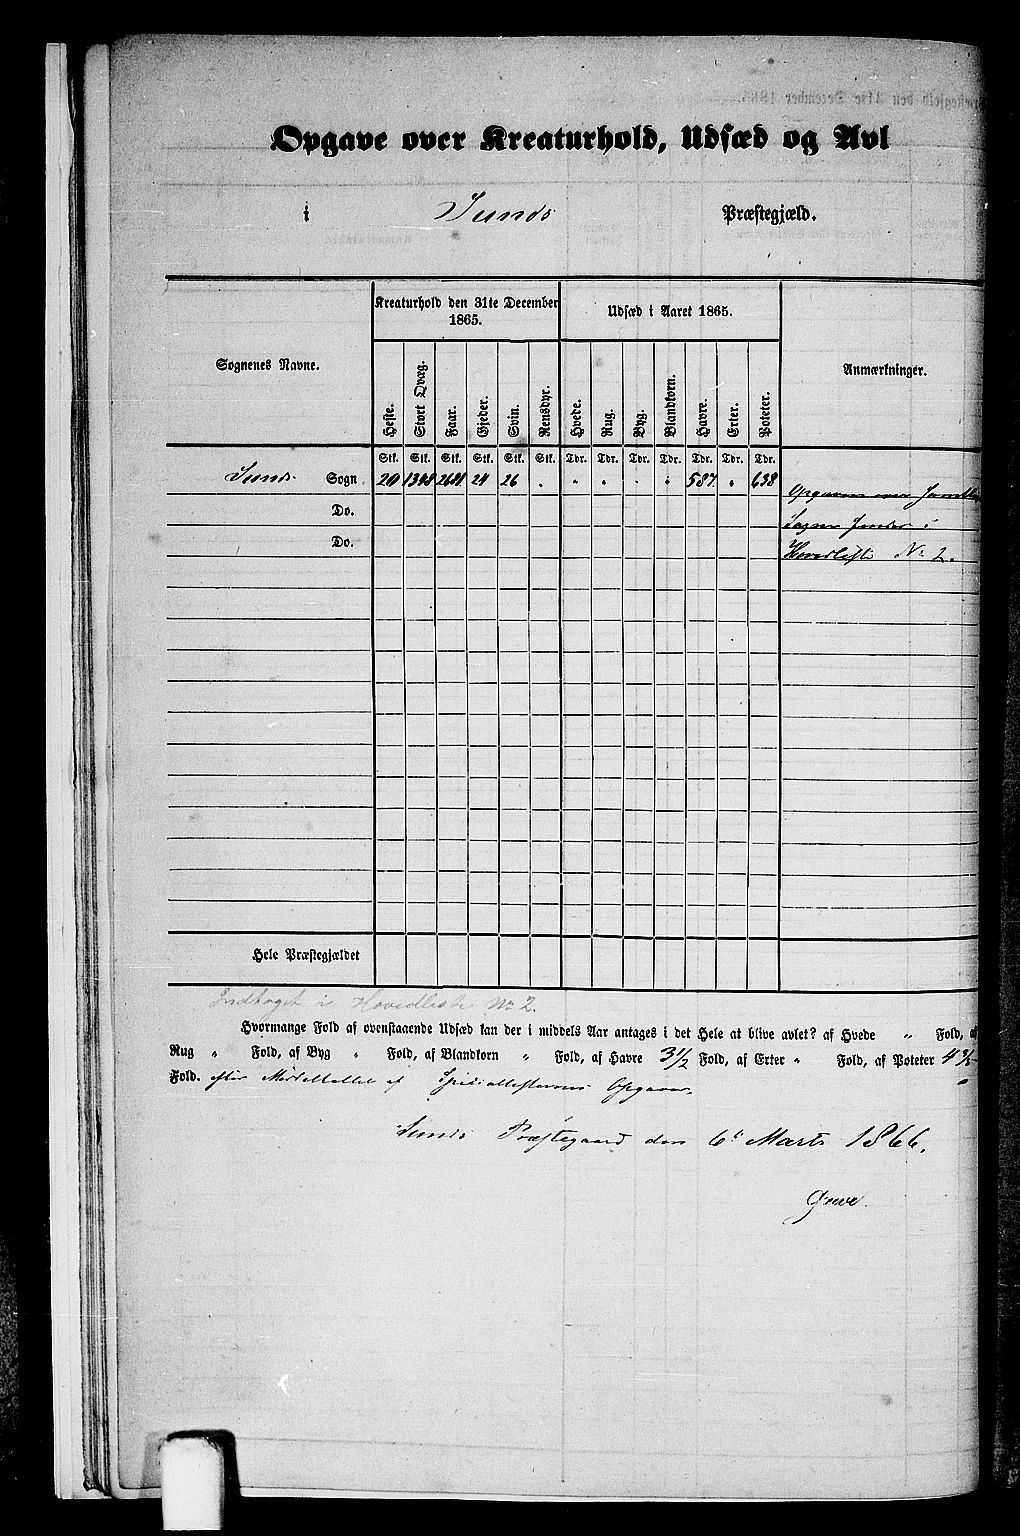 Opgave over Kreaturhold, Udsæd og Avl
i Sunds Præstegjæld.
Sognenes Navne. Kreaturhold den 31te December 1865. Udsæd i Aaret 1865. Anmærkninger.
Heste. Stort Qvæg. Faar. Gjeder. Svin. Rensdyr. Hvede. Rug. Byg. Blandkorn. Havre. Erter. Poteter.
Stk. Stk. Stk. Stk. Stk. Stk. Tdr. Tdr. Tdr. Tdr. Tdr. Tdr. Tdr.
Sunds Sogn 20 1348 24 26 . " " " " 587 " 638 Opgaven over
Do. Sogne findes i
Do. Hovedliste No 2.
Hele Præstegjældet
Indtaget i Hovedliste No 2.
Hvormange Fold af ovenstaaende Udsæd kan der i middels Aar antages i det Hele at blive avlet? af Hvede " Fold, af
Rug " Fold, af Byg " Fold, af Blandkorn " Fold, af Havre 3 1/2 Fold, af Erter " Fold, af Poteter
Fold. efter Middeltallet af Speciallisternes Opgaver.
Sunds Præstegaard den 6te Marts 1866.
Greve.